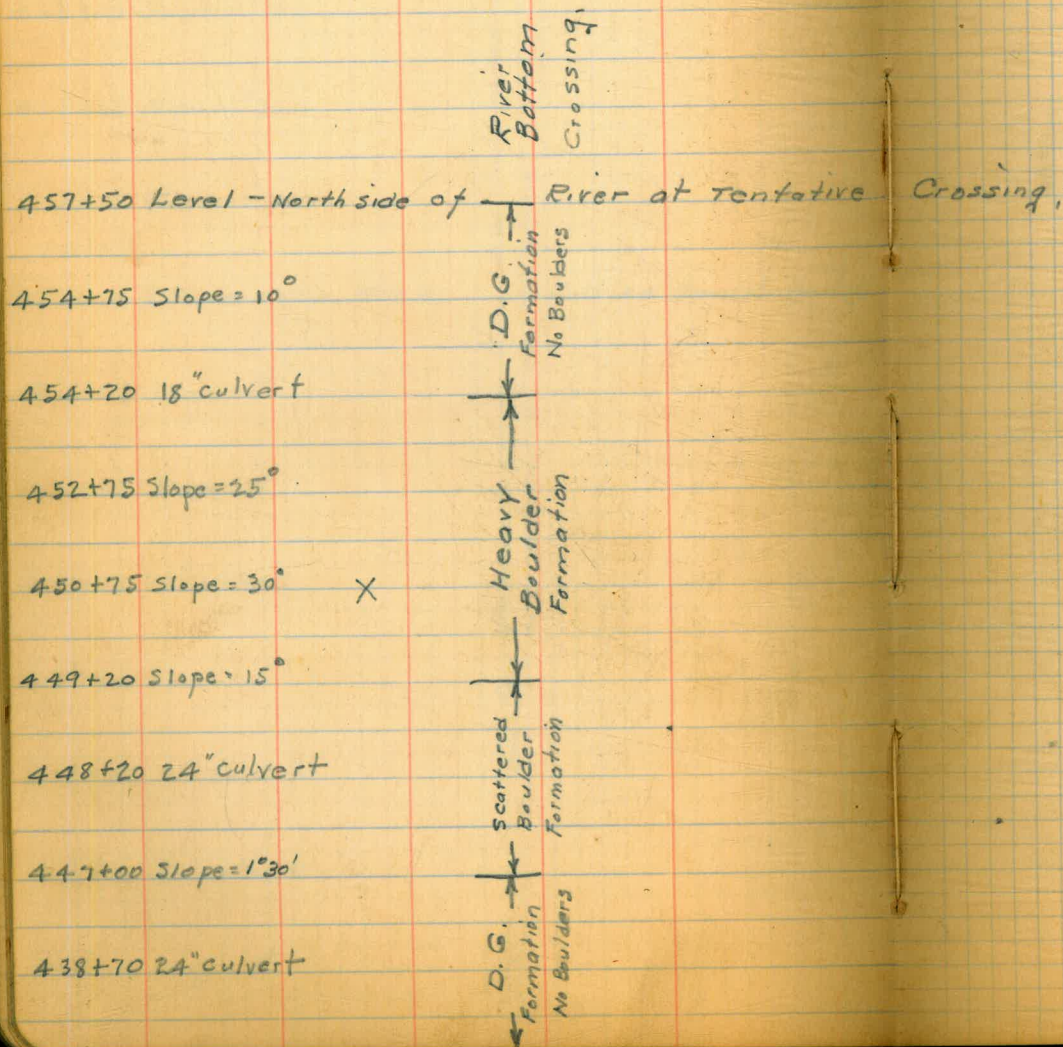 River
Bottom
Crossing.
457+50 Level - North side of River at Tentative Crossing.
D.G.
Formation
No Boulders
454+75 Slope = 10°
454+20 18" culvert
Heavy
Boulder
Formation
452+75 Slope = 25°
450+75 Slope = 30° X
449+20 Slope = 15°
Scattered
Boulder
Formation
448+20 24" culvert
447+00 Slope = 1°30'
D.G.
Formation
No Boulders
438+70 24" culvert